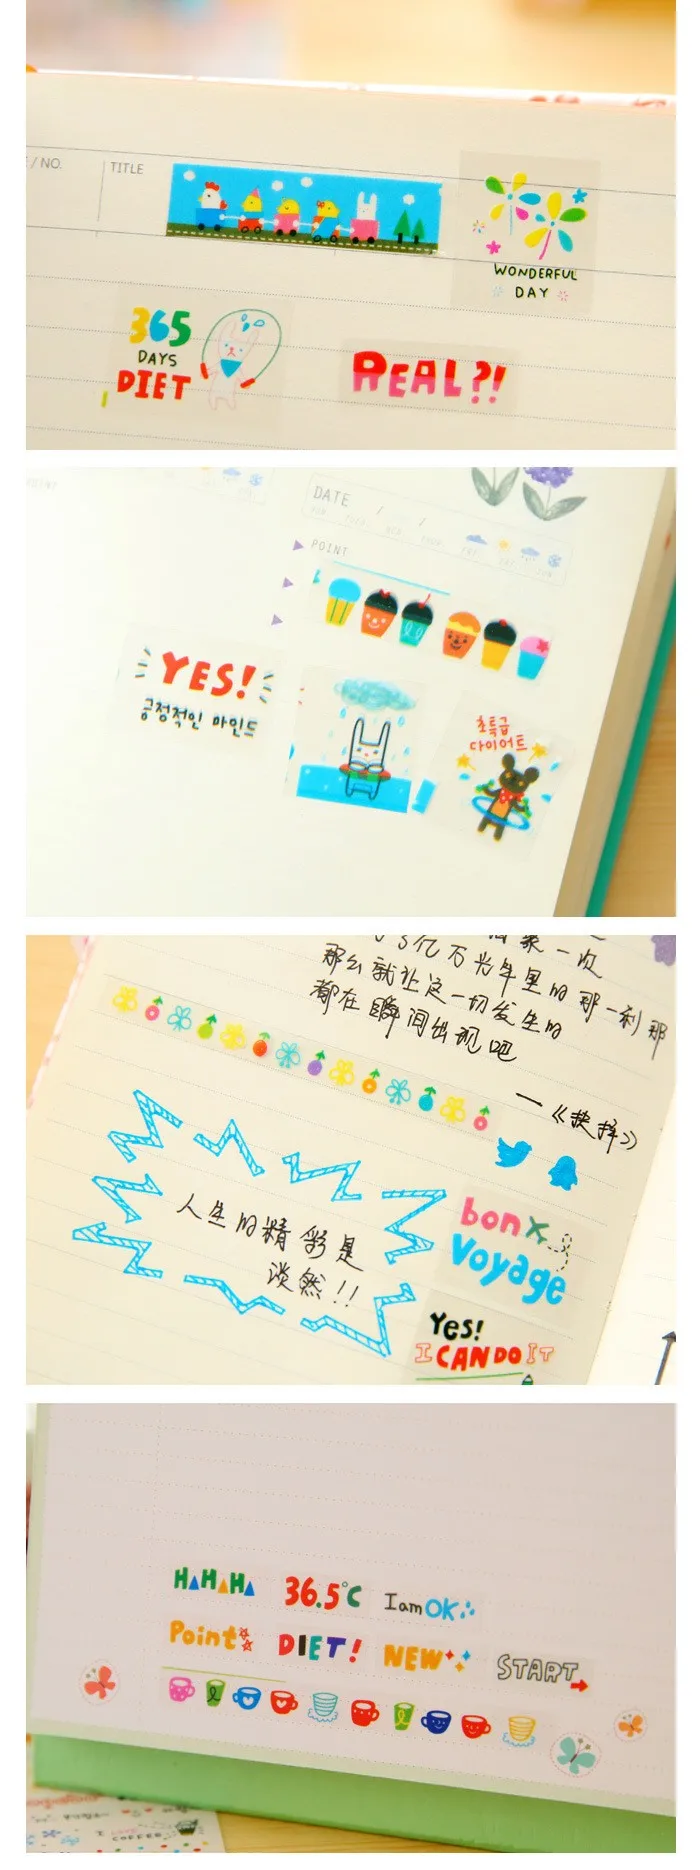 / NO.
TITLE
WONDERFUL
DAY
365
DAYS
DIET
REAL?!
POINT
DATE / /
POINT
YES!
긍정적인 마인드
초특급
다이어트
亿万光年里的那一刹那
那么就让这一切发生的
都在瞬间出现吧
—《抉择》
人生的精彩是
淡然!!
bon
Voyage
Yes!
I CAN DO IT
HAHAHA
36.5°C
I am OK
Point
DIET!
NEW
START
COFFEE